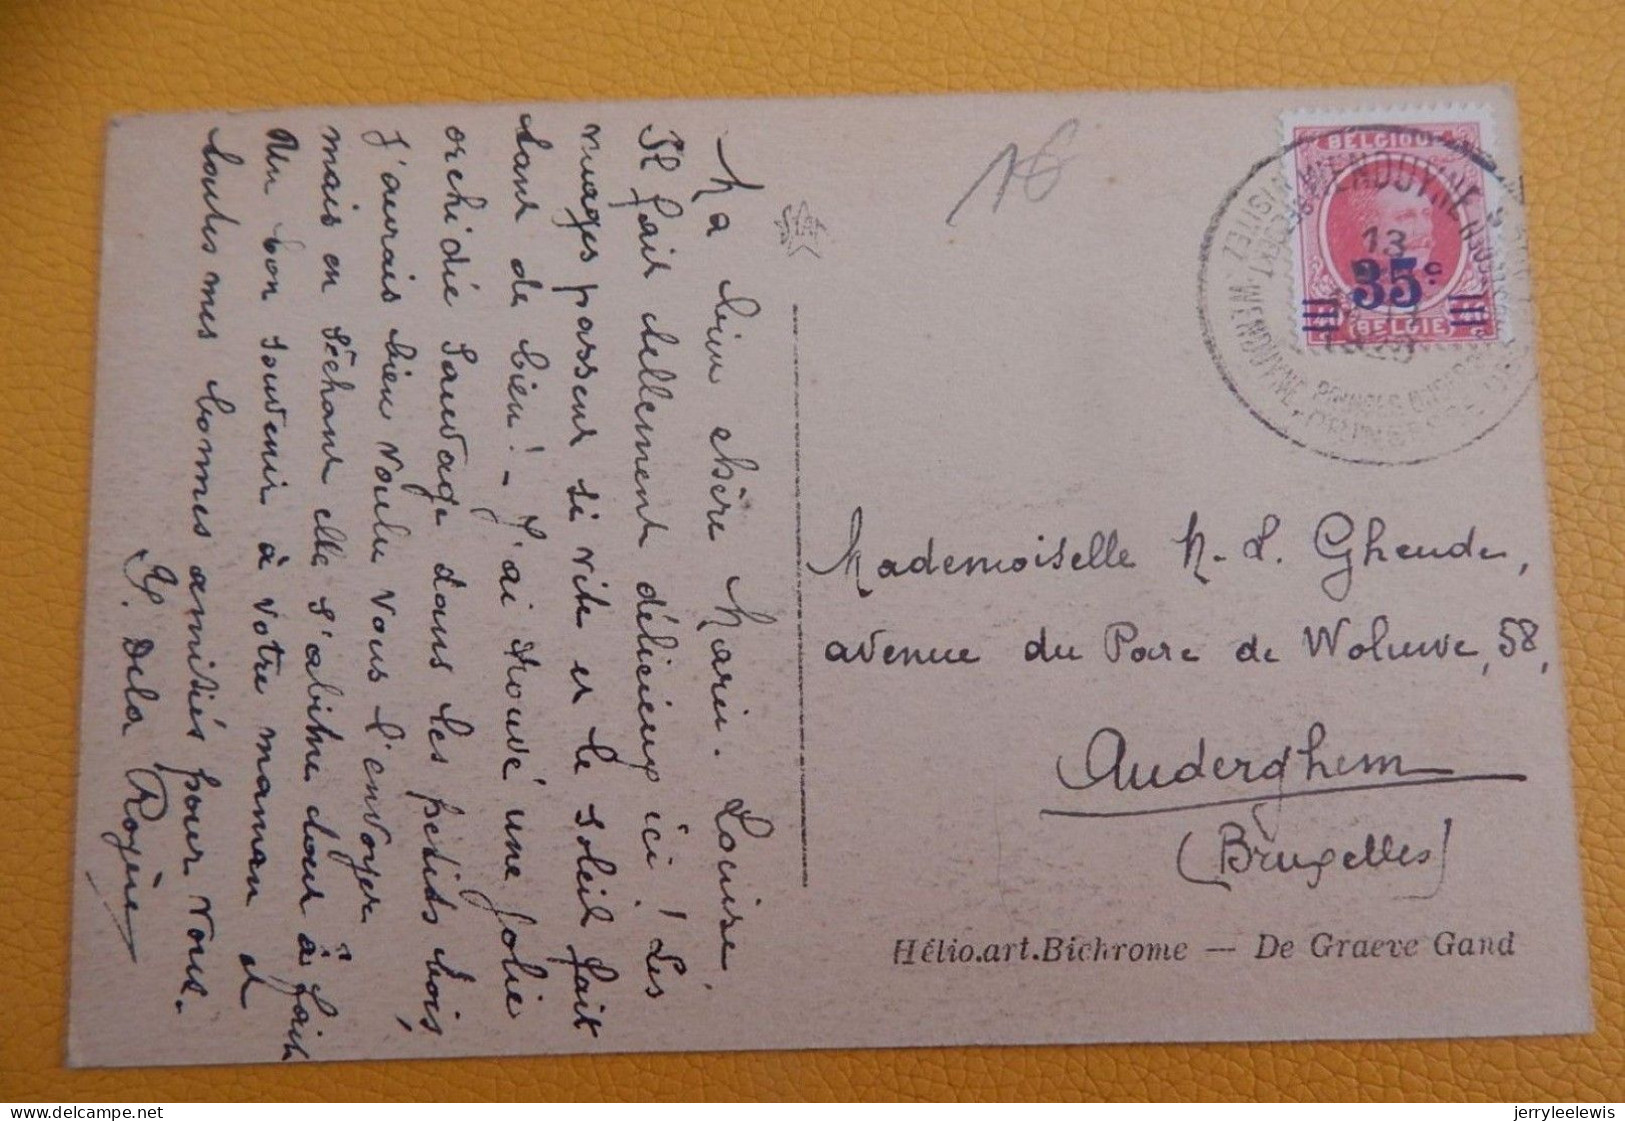 Ma bien chère Marie-Louise,
Il fait tellement délicieux ici! Les
nuages passent si vite et le soleil fait
tant de bien! - J'ai trouvé une jolie
orchidée sauvage dans les petits bois,
J'aurais bien voulu vous l'envoyer
mais en séchant elle s'abîme tout à fait
Un bon souvenir à votre maman et
toutes mes bonnes amitiés pour vous.
Y. Dela Royère
16
BELGIQUE
WENDUYNE
13
35c
BELGIË
VISITEZ WENDUYNE
BEZOEKT WENDUYNE
PRINSES
Mademoiselle M. L. Gheude,
avenue du Parc de Woluwe, 58,
Auderghem
(Bruxelles)
Hélio.art.Bichrome — De Graeve Gand
https://www.delcampe.net
jerryleelewis